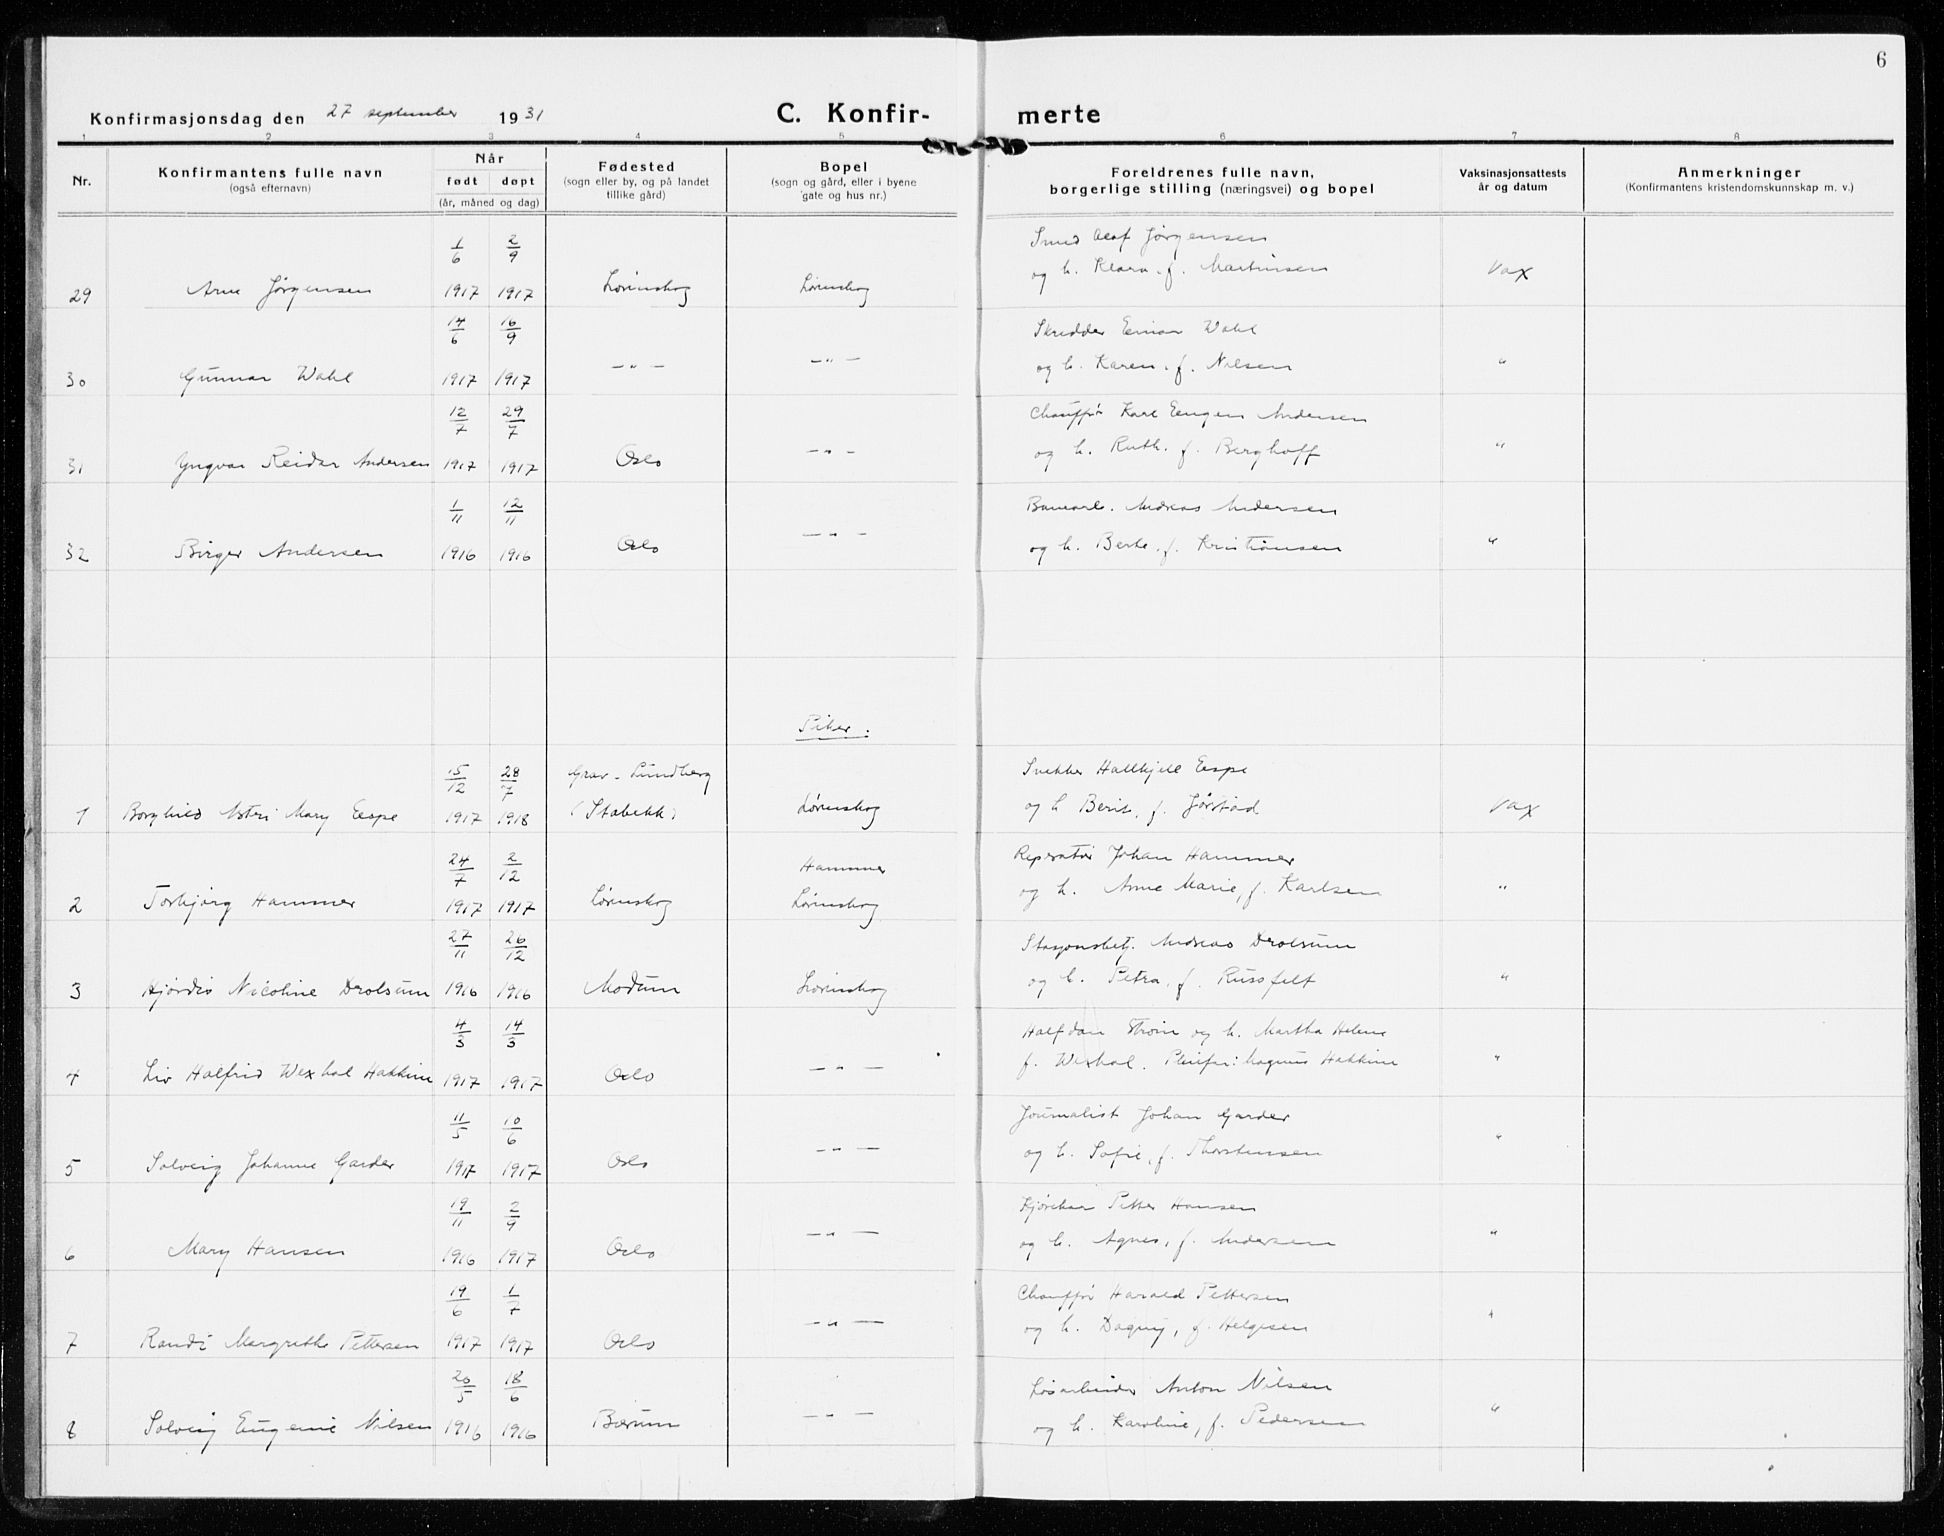 6
Konfirmasjonsdag den 27 september 1931 C. Konfir- merte
1 2 3 4 5 6 7 8
Nr. Konfirmantens fulle navn (også efternavn) Når født døpt (år, måned og dag) Fødested (sogn eller by, og på landet tillike gård) Bopel (sogn og gård, eller i byene gate og hus nr.) Foreldrenes fulle navn, borgerlige stilling (næringsvei) og bopel Vaksinasjonsattests år og datum Anmerkninger (Konfirmantens kristendomskunnskap m. v.)
1/6 2/9 Smed Olaf Jørgensen
29 Arne Jørgensen 1917 1917 Lørenskog Lørenskog og h. Klara, f. Martinsen Vax
14/6 16/9 Skredder Einar Wahl
30 Gunnar Wahl 1917 1917 — " — — " — og h. Karen, f. Nilsen "
12/7 29/7 Chauffør Karl Eugen Andersen
31 Yngvar Reidar Andersen 1917 1917 Oslo — " — og h. Ruth, f. Berghoff "
1/11 12/11 Banearb. Andreas Andersen
32 Birger Andersen 1916 1916 Oslo — " — og h. Berte, f. Kristiansen "
Piker:
15/12 28/7 Grav - Lundberg Snekker Hallkjell Eespe
1 Borghild Astri Mary Eespe 1917 1918 (Stabekk) Lørenskog og h Berit, f. Jørstad Vax
24/7 2/12 Hammer Reperatør Johan Hammer
2 Torbjørg Hammer 1917 1917 Lørenskog Lørenskog og h. Anne Marie, f. Karlsen "
27/11 26/12 Stasjonsbetj. Andreas Drolsum
3 Hjørdis Nicoline Drolsum 1916 1916 Modum Lørenskog og h. Petra, f. Russfelt "
4/3 14/3 Halfdan Strøm og h. Martha Helene
4 Liv Halfrid Wexhal Hakkine 1917 1917 Oslo — " — f. Wexhal. Pleiefar: Magnus Hakkine "
11/5 10/6 Journalist Johan Garder
5 Solveig Johanne Garder 1917 1917 Oslo — " — og h. Sofie, f. Thorstensen "
19/11 2/9 Kjørekar Petter Hansen
6 Mary Hansen 1916 1917 Oslo — " — og h. Agnes, f. Andersen "
19/6 1/7 Chauffør Harald Pettersen
7 Randi Margrethe Pettersen 1917 1917 Oslo — " — og h. Dagny, f. Helgesen "
20/5 18/6 Løsarbeider Anton Nilsen
8 Solveig Eugenie Nilsen 1916 1916 Bærum — " — og h. Karoline, f. Pedersen "